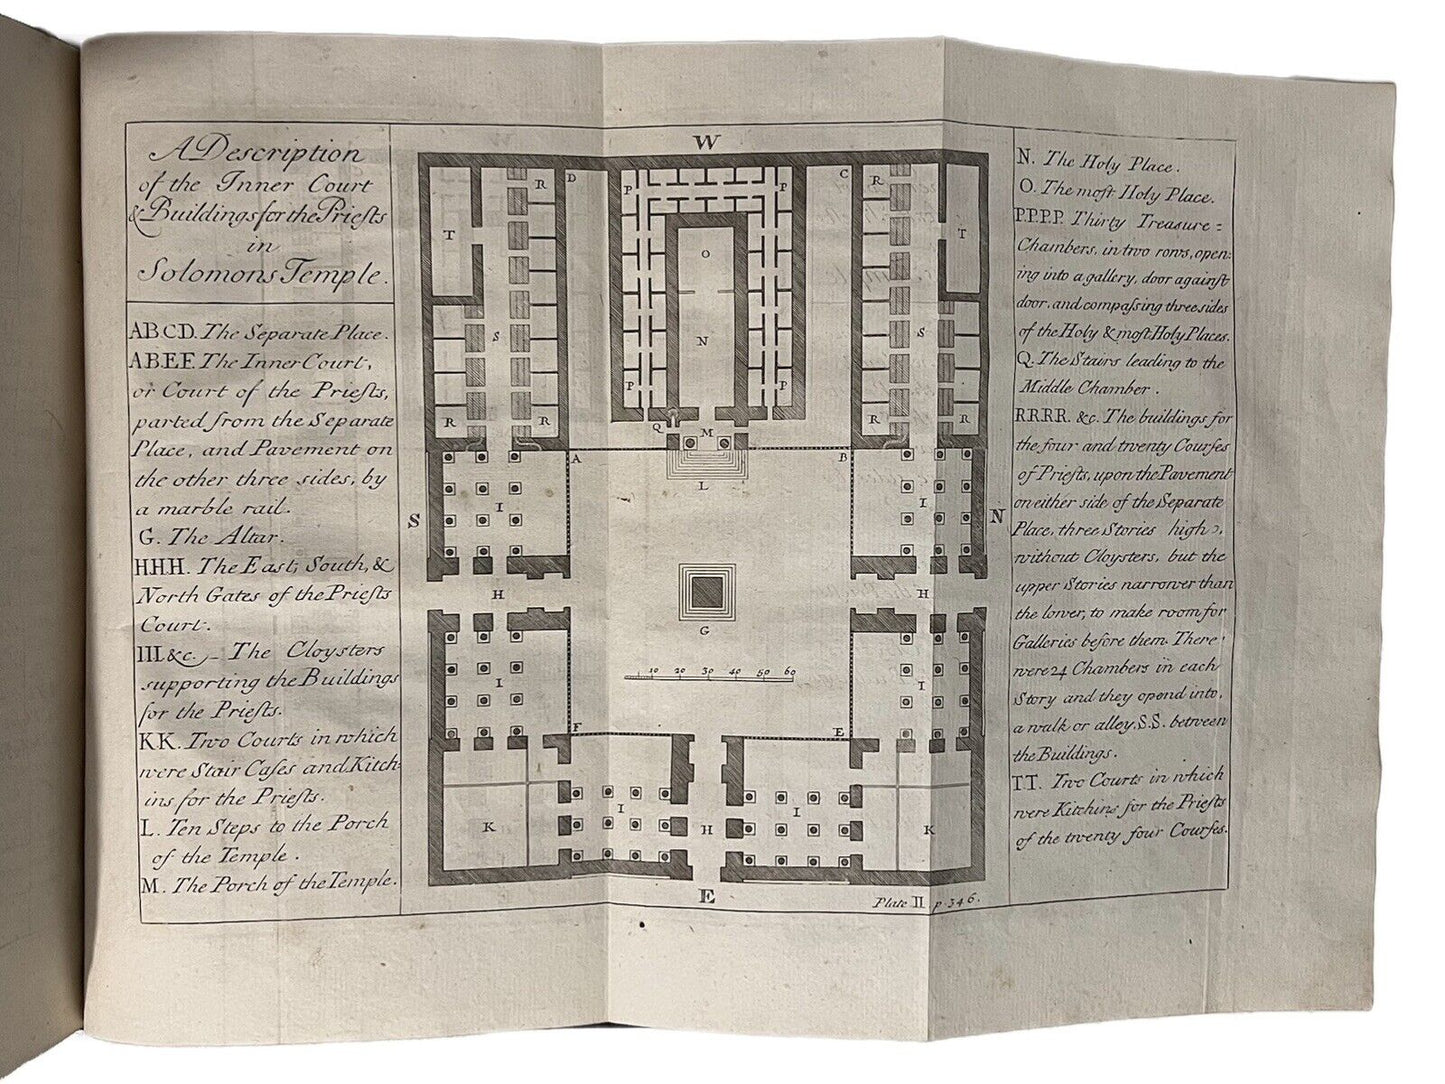 A Description
of the Inner Court
& Buildings for the Prieſts
in
Solomons Temple.
ABCD. The Separate Place.
ABEF. The Inner Court,
or Court of the Prieſts,
parted from the Separate
Place, and Pavement on
the other three sides, by
a marble rail.
G. The Altar.
HHH. The East, South, &
North Gates of the Prieſts
Court.
III.&c. The Cloysters
supporting the Buildings
for the Prieſts.
KK. Two Courts in which
were Stair Caſes and Kitch-
ins for the Prieſts.
L. Ten Steps to the Porch
of the Temple.
M. The Porch of the Temple.
W
D
C
R
R
P
P
T
T
O
S
S
N
P
P
R
R
R
R
Q
M
A
B
L
I
I
S
N
H
H
G
10 20 30 40 50 60
I
I
F
E
I
I
K
H
K
E
Plate II. p. 346.
N. The Holy Place.
O. The moſt Holy Place.
P.P.P.P. Thirty Treasure=
Chambers, in two rows, open-
ing into a gallery, door againſt
door, and compaſsing three sides
of the Holy & moſt Holy Places.
Q. The Stairs leading to the
Middle Chamber.
RRRR. &c. The buildings for
the four and twenty Courſes
of Prieſts, upon the Pavement
on either side of the Separate
Place, three Stories high,
without Cloysters, but the
upper Stories narrower than
the lower, to make room for
Galleries before them. There
were 24 Chambers in each
Story and they opend into,
a walk or alley, S.S. between
the Buildings.
T.T. Two Courts in which
were Kitchins for the Prieſts
of the twenty four Courſes.